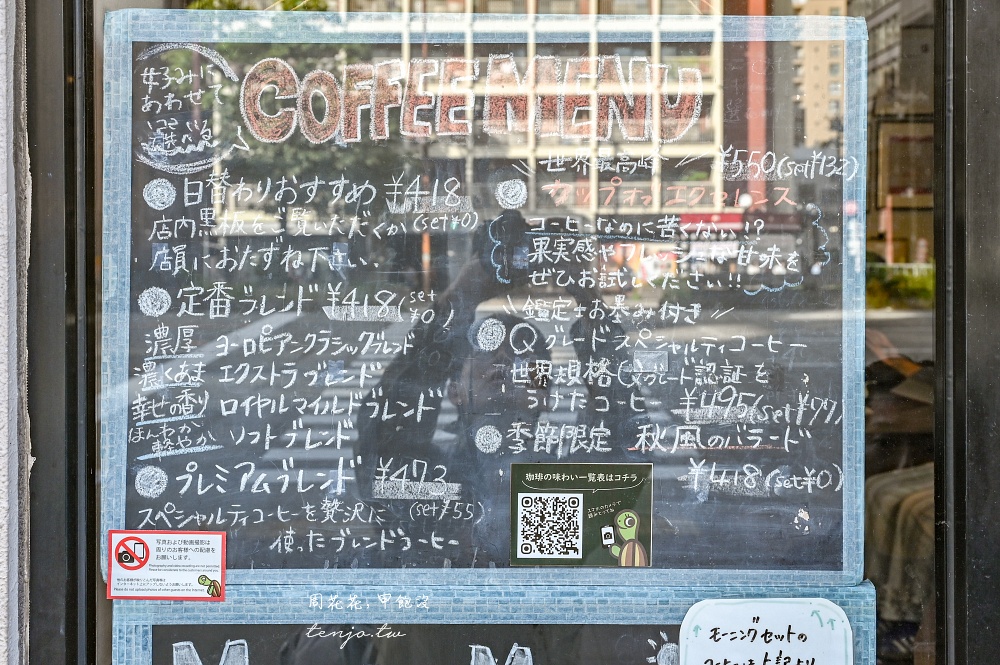 好みに
あわせて
選べる
COFFEE MENU
日替わりおすすめ ¥418
店内黒板をご覧いただくか (set¥0)
店員におたずね下さい.
定番ブレンド ¥418 (set ¥0)
濃厚 ヨーロピアンクラシックブレンド
濃くあま エクストラブレンド
幸せの香り ロイヤルマイルドブレンド
ほんわか軽やか ソフトブレンド
プレミアムブレンド ¥473
スペシャルティコーヒーを贅沢に (set¥55)
使ったブレンドコーヒー
世界最高峰 ¥550 (set¥132)
カップオブエクセレンス
コーヒーなのに苦くない!?
果実感やフレッシュな甘味を
ぜひお試しください!!
鑑定士お墨み付き
Qグレードスペシャルティコーヒー
世界規格Qグレード認証を
うけたコーヒー ¥495 (set¥77)
季節限定 秋風のバラード
¥418 (set¥0)
珈琲の味わい一覧表はコチラ
スマホのカメラで
読みとってね
写真および動画撮影は
周りのお客様への配慮を
お願いします。
Please do not upload photos of other guests on the Internet.
周花花，甲飽沒
tenjo.tw
モーニングセットの